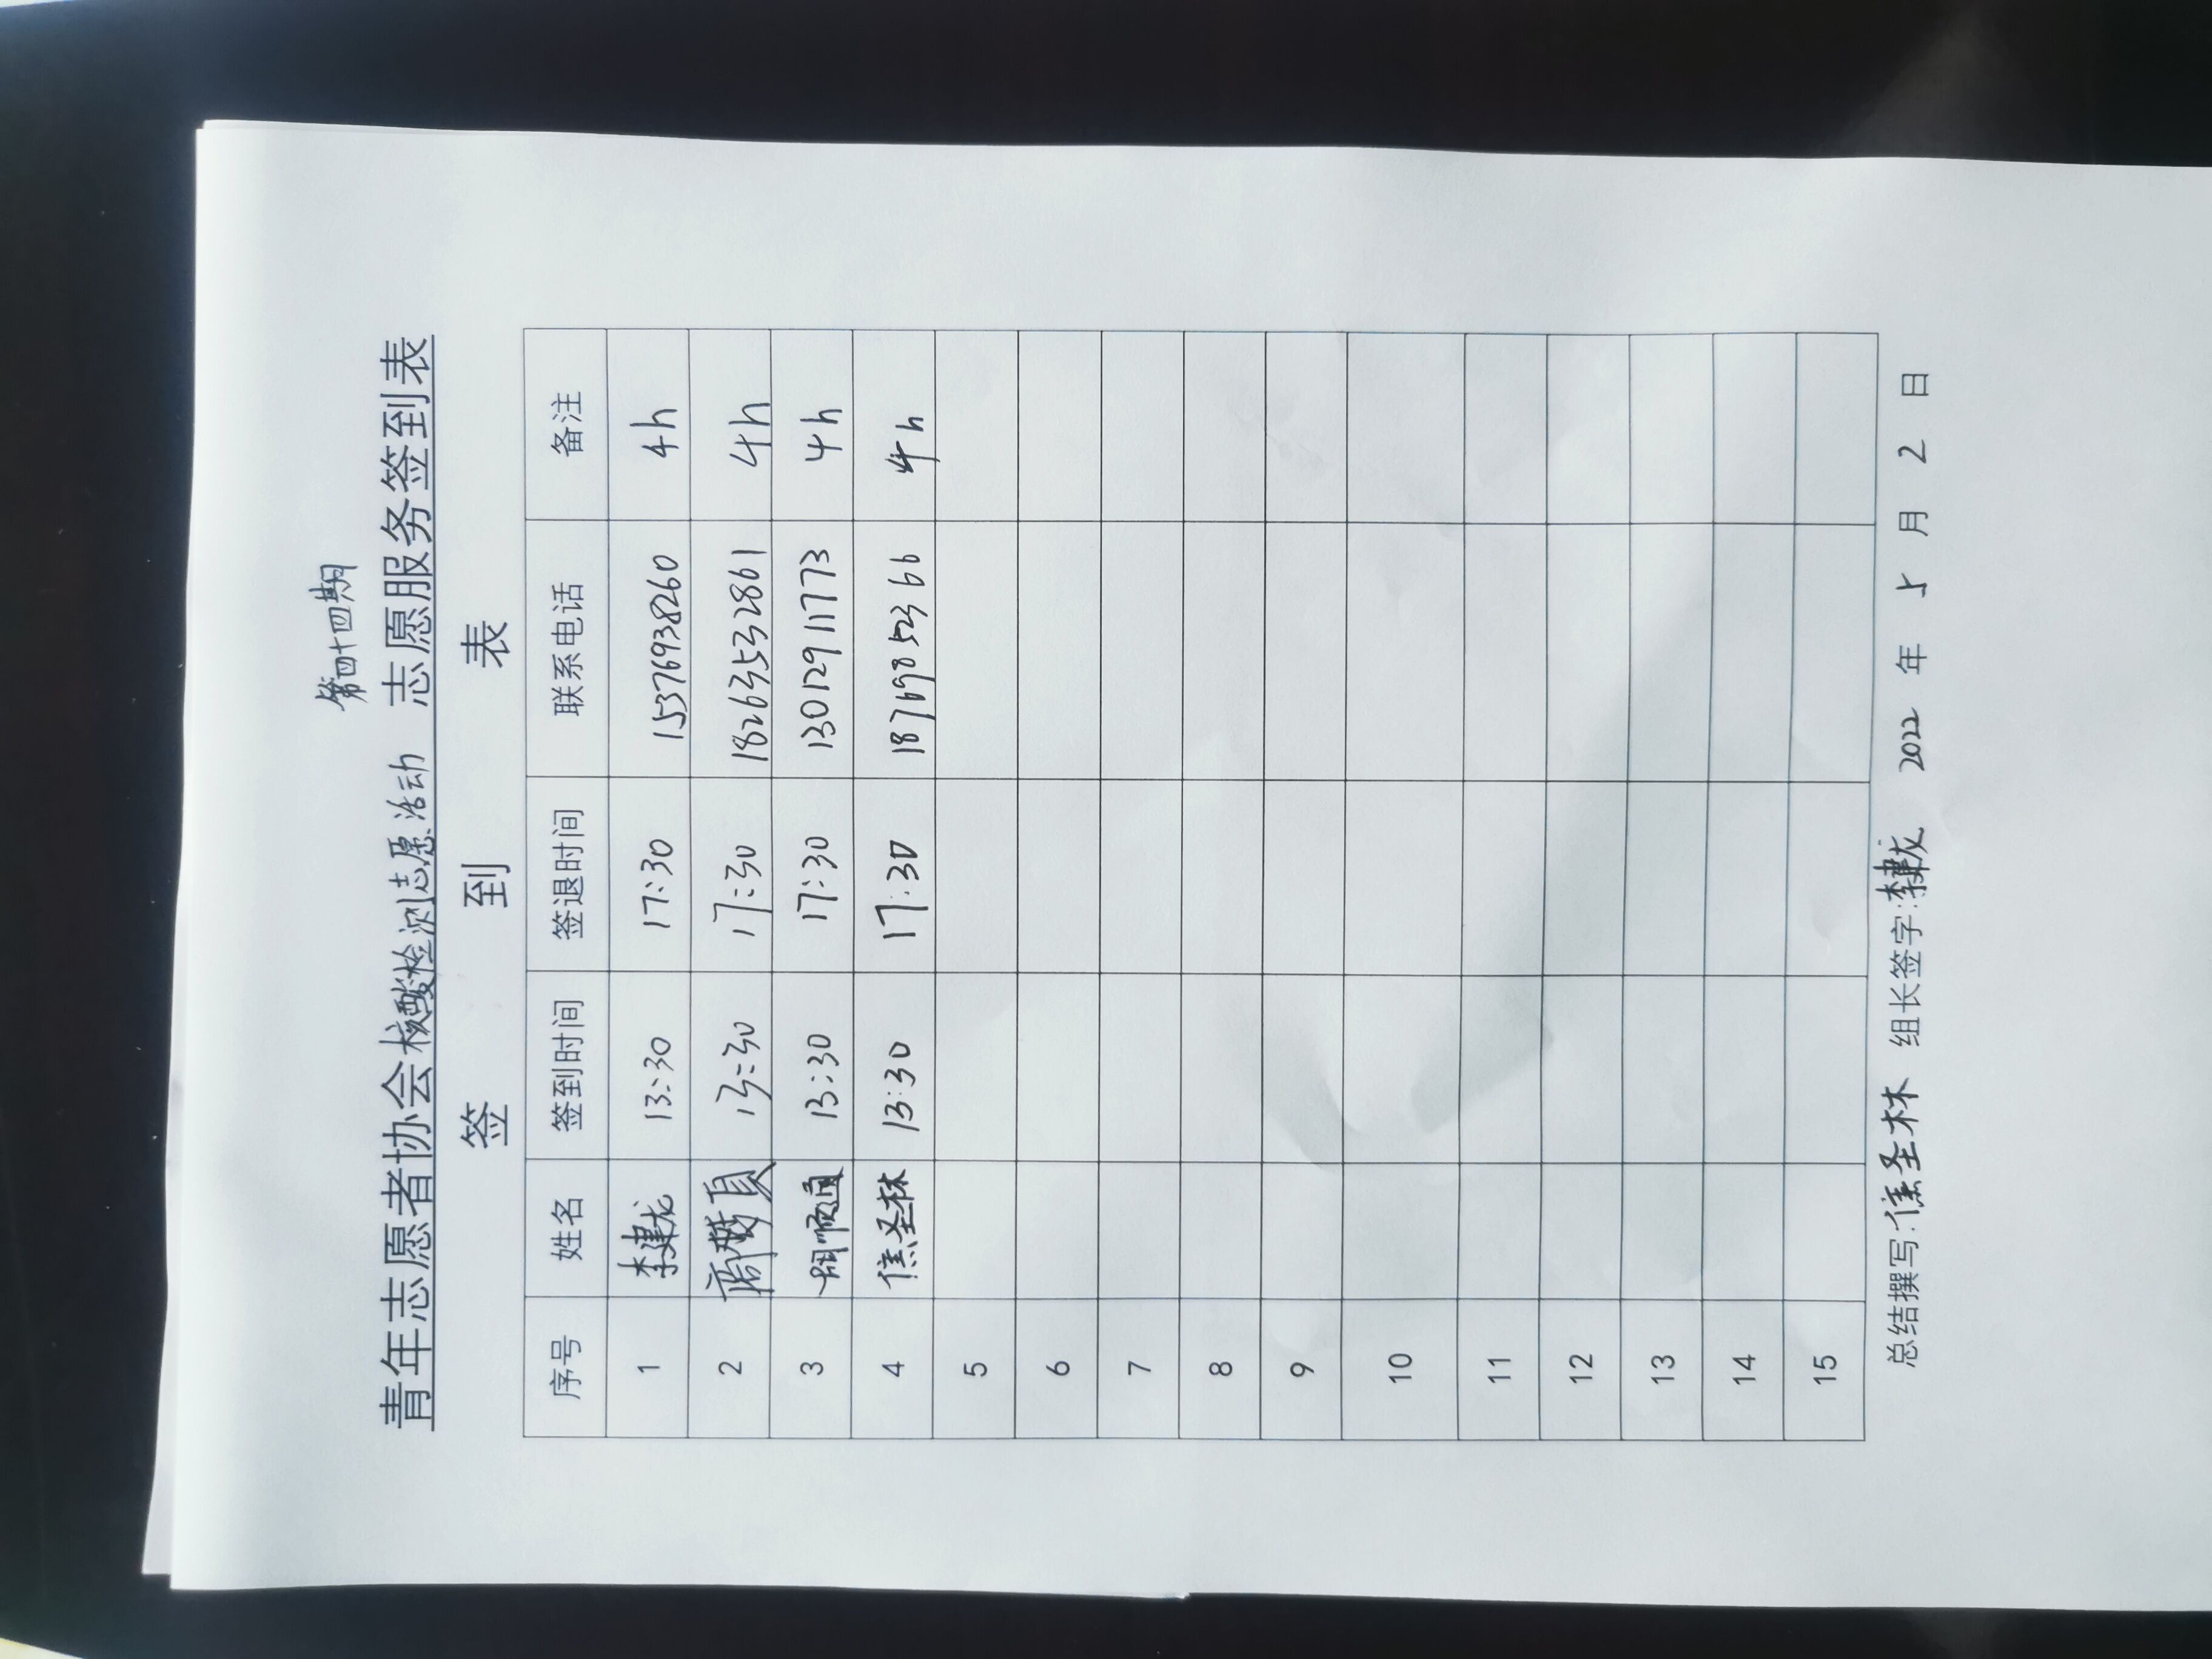 第四十四期
青年志愿者协会核酸检测志愿活动 志愿服务签到表
签 到 表
序号 姓名 签到时间 签退时间 联系电话 备注
1 李建龙 13:30 17:30 15376938260 4h
2 13:30 17:30 18263532861 4h
3 胡顺通 13:30 17:30 13012911773 4h
4 焦圣林 13:30 17:30 18769852366 4h
5
6
7
8
9
10
11
12
13
14
15
总结撰写:焦圣林 组长签字:李建龙 2022 年 5 月 2 日